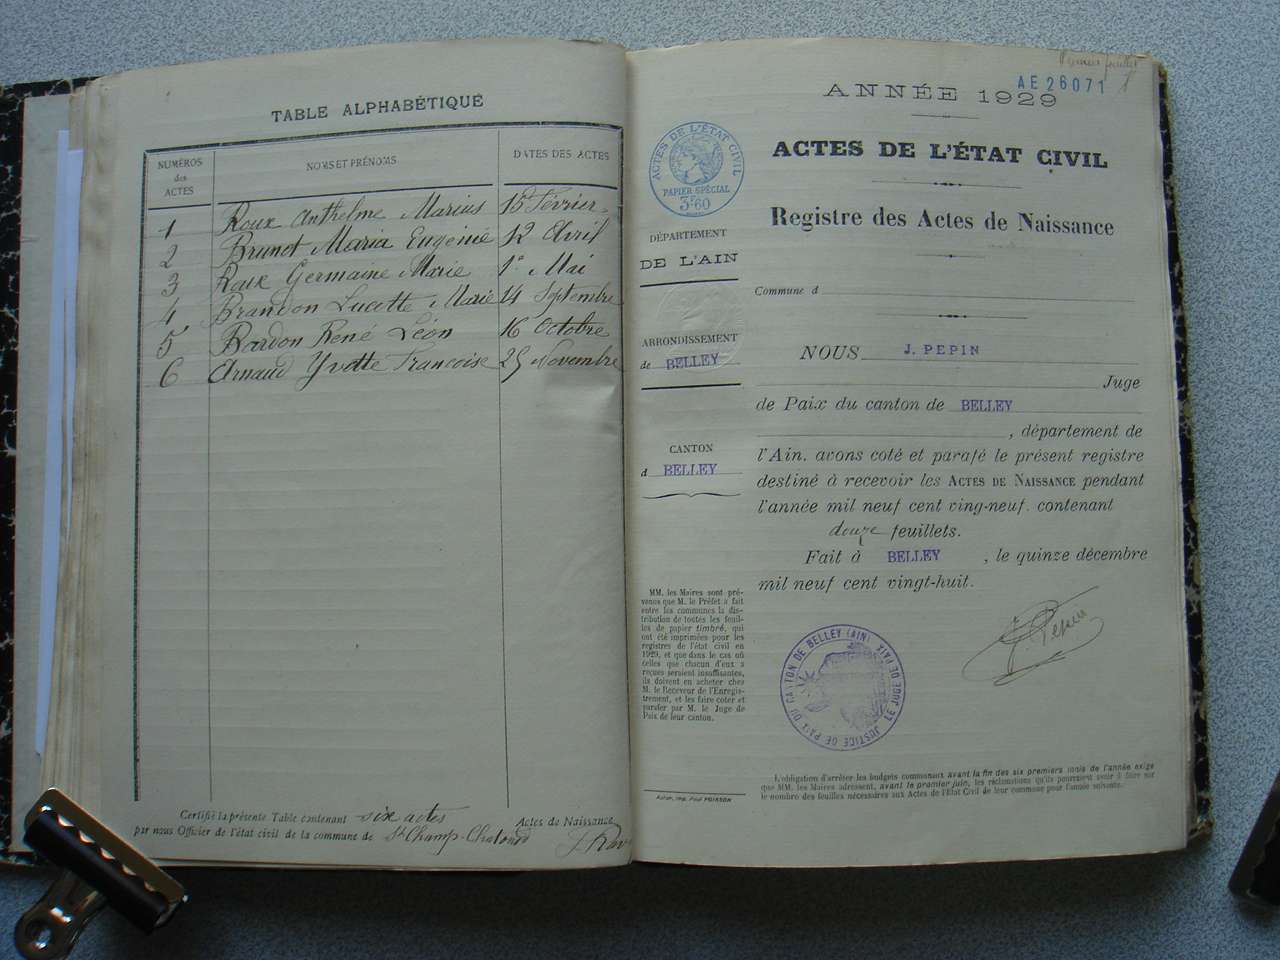 TABLE ALPHABÉTIQUE
NUMÉROS des ACTES
NOMS ET PRÉNOMS
DATES DES ACTES
1 Roux Anthelme Marius 15 Février
2 Brunot Maria Eugénie 12 Avril
3 Roux Germaine Marie 1er Mai
4 Brandon Lucette Marie 14 Septembre
5 Bardon René Léon 16 Octobre
6 Arnaud Yvette Francoise 25 Novembre
Certifié la présente Table contenant six actes Actes de Naissance
par nous Officier de l'état civil de la commune de St Champ-Chatonod
Premier feuillet
AE 26071
ANNÉE 1929
ACTES DE L'ÉTAT CIVIL
Registre des Actes de Naissance
ACTES DE L'ÉTAT CIVIL
PAPIER SPÉCIAL
3F60
DÉPARTEMENT
DE L'AIN
ARRONDISSEMENT
de BELLEY
CANTON
d BELLEY
Commune d
NOUS J. PEPIN
Juge
de Paix du canton de BELLEY
, département de
l'Ain, avons coté et parafé le présent registre
destiné à recevoir les ACTES DE NAISSANCE pendant
l'année mil neuf cent ving-neuf. contenant
douze feuillets.
Fait à BELLEY , le quinze décembre
mil neuf cent vingt-huit.
J. Pepin
JUSTICE DE PAIX DU CANTON DE BELLEY (AIN)
LE JUGE DE PAIX
MM. les Maires sont pré-
venus que M. le Préfet a fait
entre les communes la dis-
tribution de toutes les feuil-
les de papier timbré, qui
ont été imprimées pour les
registres de l'état civil en
1929, et que dans le cas où
celles que chacun d'eux a
reçues seraient insuffisantes,
ils doivent en acheter chez
M. le Receveur de l'Enregis-
trement, et les faire coter et
parafer par M. le Juge de
Paix de leur canton.
L'obligation d'arrêter les budgets communaux avant la fin des six premiers mois de l'année exige
que MM. les Maires adressent, avant le premier juin, les réclamations qu'ils pourraient avoir à faire sur
le nombre des feuilles nécessaires aux Actes de l'État Civil de leur commune pour l'année suivante.